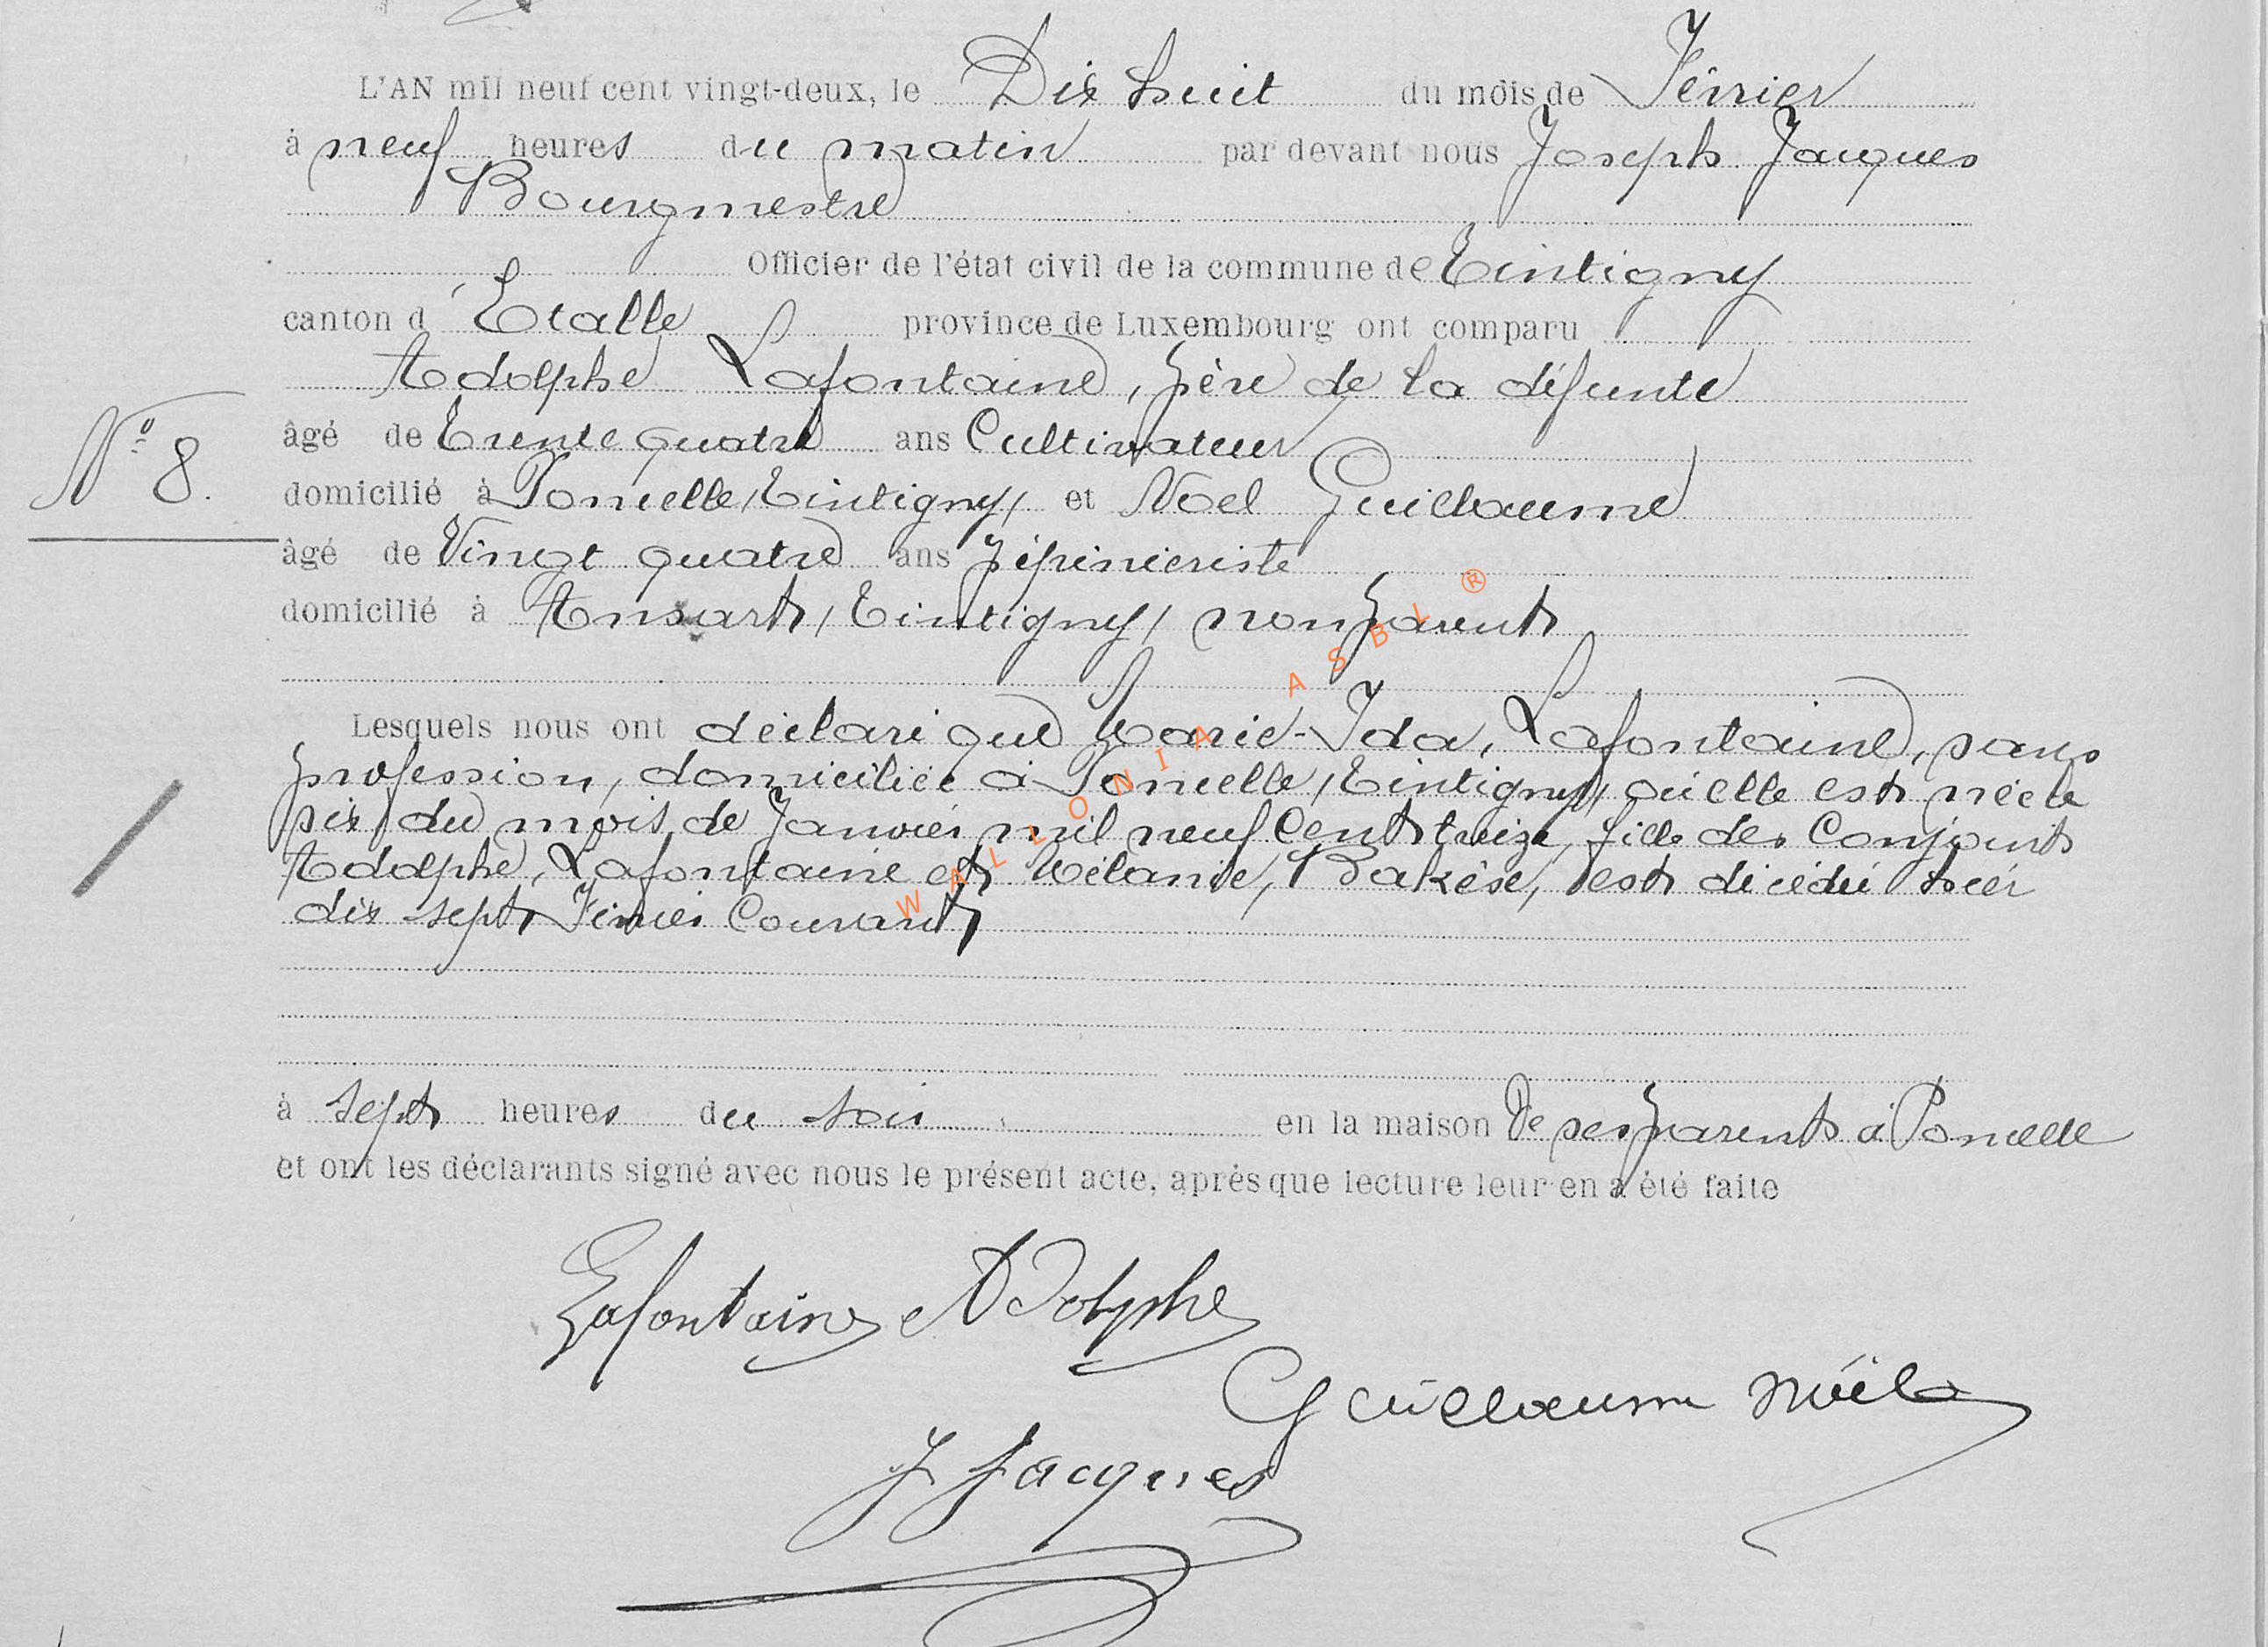 L'AN mil neuf cent vingt-deux, le Dix huit du mois de Février
à neuf heures du matin par devant nous Joseph Jacques
Bourgmestre
Officier de l'état civil de la commune de Tintigny
canton d'Etalle province de Luxembourg ont comparu
Adolphe Lafontaine, père de la défunte
N° 8.
âgé de Trente quatre ans Cultivateur
domicilié à Poncelle /Tintigny/ et Noel Guillaume
âgé de Vingt quatre ans pépinièriste
domicilié à Ansart /Tintigny/ non parent
Lesquels nous ont déclaré que Marie-Ida, Lafontaine, sans
profession, domiciliée à Poncelle /Tintigny/ où elle est née le
six du mois de Janvier mil neuf Cent treize, fille des Conjoints
Adolphe, Lafontaine et Mélanie, Bakèse, est décédée hier
dix sept Février Courant
à sept heures du soir en la maison De ses parents à Poncelle
et ont les déclarants signé avec nous le présent acte, après que lecture leur en a été faite
Lafontaine Adolphe
Guillaume Noël
J Jacques
WALLONIA ASBL ®